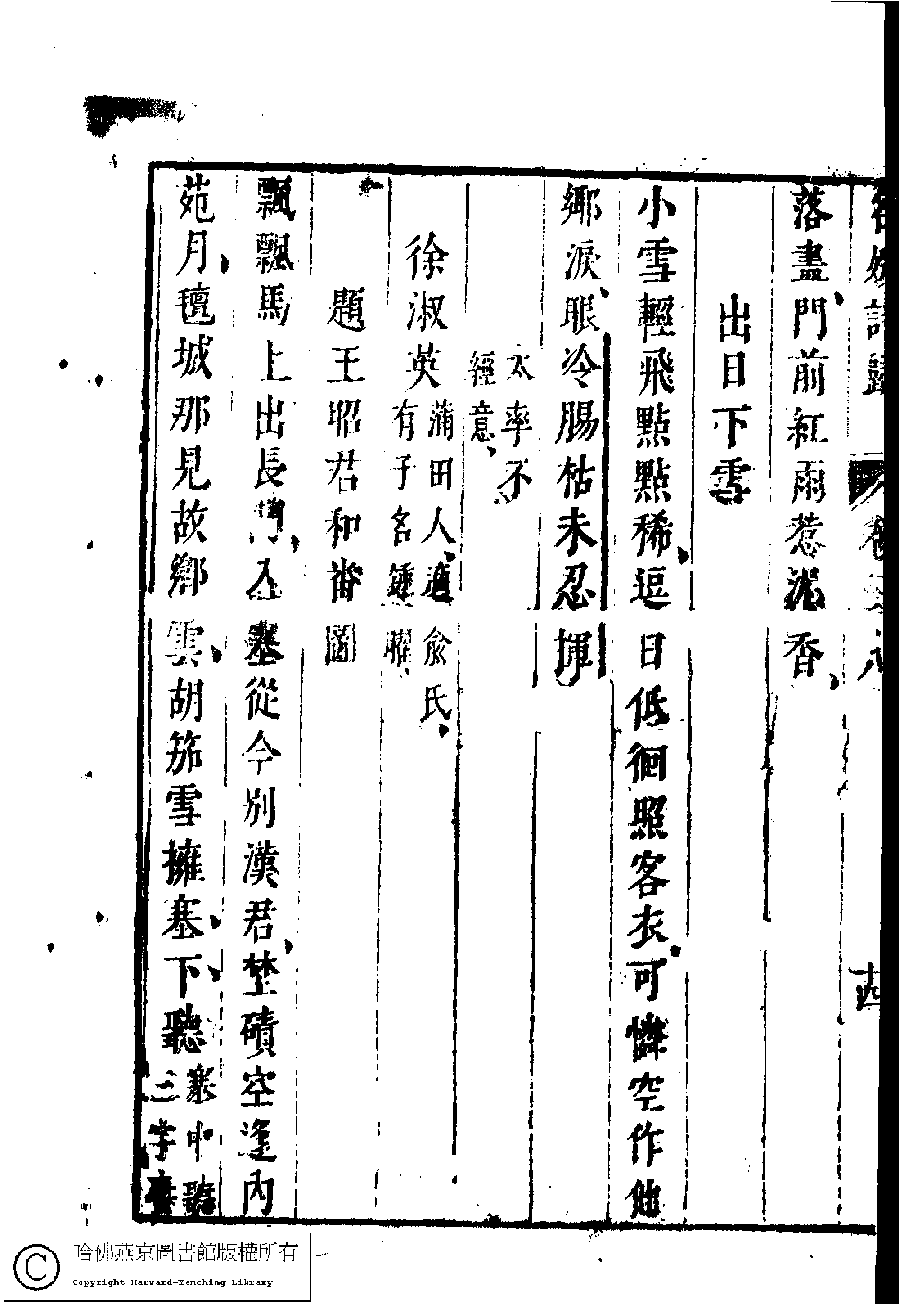 名媛詩歸
落盡門前紅雨惹泥香
出日下雪
小雪輕飛點點稀逗日低徊照客衣可憐空作他
鄉淚眼冷腸枯未忍揮
太率不
經意
徐淑英
莆田人適俞氏
有子名鍾
題王昭君和番圖
飄飄馬上出長門入塞從今別漢君埜磧空逢內
苑月氊城那見故鄉雲胡笳雪擁塞下聽
眾中聽
三字
哈佛燕京圖書館版權所有
Copyright Harvard-Yenching Library